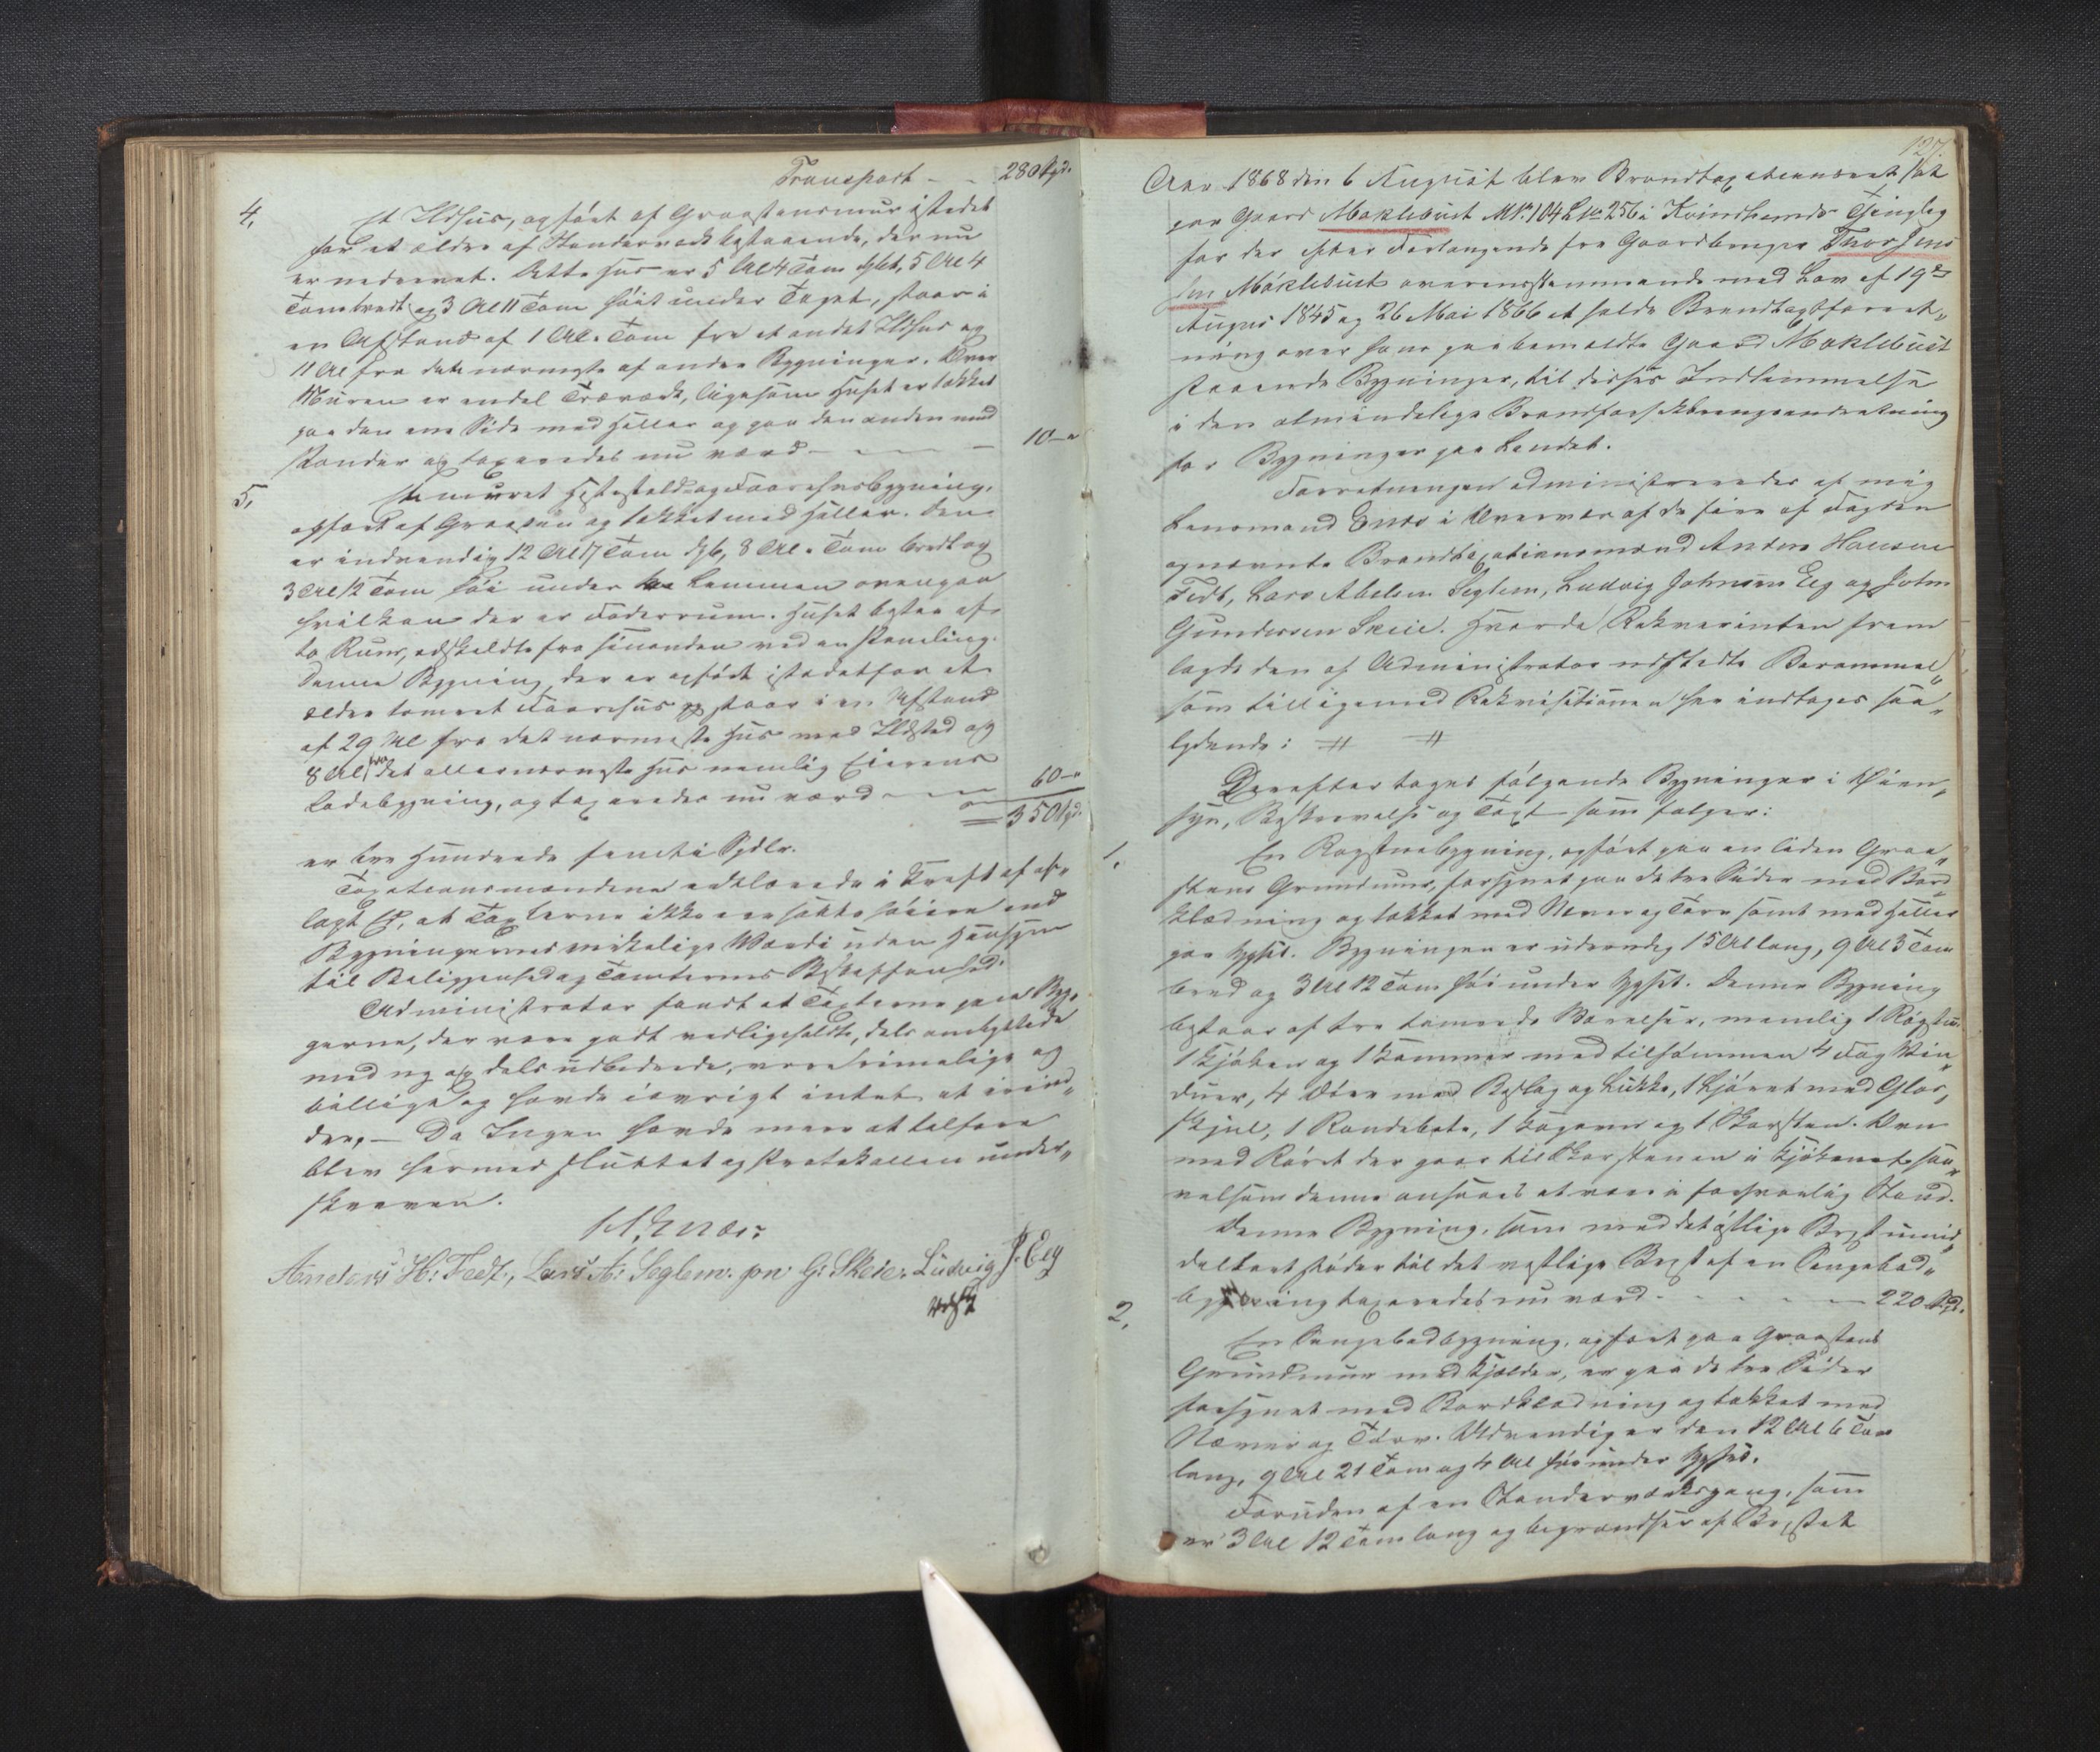 Transport - - 280 Spd.
4, Et Ildhus, opført af Graastensmuur istedet
for et ældre af Standerværk bestaaende, der nu
er nedrevet. Dette Huus er 5 Al 4 Tom dybt, 5 Al 4
Tom bredt og 3 Al 11 Tom høit under Taget, staar i
en Afstand af 1 Al. Tom fra et andet Ildhus og
11 Al fra det nærmeste af andre Bygninger. Over
Muren er endel Træværk, ligesom Huset er tækket
paa den ene Side med Heller og paa den anden med
Spaander og taxeredes nu værd - - - 10 - "
5, En muret Hestestald og Faarehusbygning,
opført af Graasten og tækket med Heller. Den
er indvendig 12 Al 17 Tom dyb, 8 Al. Tom bredt og
3 Al 12 Tom høi under Lemmen ovenpaa
hvilken der er Foderrum. Huset bestaar af
to Rum, adskeldte fra hinanden ved en Paneling.
Denne Bygning, der er opført istedetfor et
ældre tømret Faarehus staar i en Afstand
af 29 Al fra det nærmeste Hus med Ildsted og
8 Al fra det allernærmeste Hus nemlig Eierens
Ladebygning, og taxeredes nu værd - - 60 - "
= 350 Spd.
er tre Hundrede femti Spdlr.
Taxationsmændene erklærede i Kraft af af-
lagt Ed, at Taxterne ikke ere satte høiere end
Bygningernes virkelige Værdi uden Hensyn
til Beliggenhed og Tomternes Beskaffenhed.
Administrator fandt at Taxterne paa Byg-
gerne, der vare godt vedligeholdte, dels ombyttede
med ny og dels udbedrede, vare rimelige og
billige og havde iøvrigt intet at erin„
dre, – Da Ingen havde mere at tilføre
blev hermed sluttet og Protokollen under„
skreven.
H. Enes.
Anders H: Fedt, Lars A: Seglem. Jon G: Skeie. Ludvig J. Eeg
127.
Aar 1868 den 6 August blev Brandtaxationsret sat
paa Gaard Møklebust M.N. 104 L.No 256 i Kvindherreds Thinglag
for der efter Forlangende fra Gaardbruger Thor Jens
sen Møklebust overensstemmende med Lov af 19de
August 1845 og 26 Mai 1866 at holde Brandtaxtforret„
ning over hans paa bemeldte Gaard Møklebust
staaende Bygninger, til disses Indlemmelse
i den almindelige Brandforsikkrengsindretning
for Bygninger paa Landet.
Forretningen administreredes af mig
Lensmand Enes i Overvær af de fire af Fogden
opnævnte Brandtaxationsmænd Anders Hansen
Fedt, Lars Abelsen Seglem, Ludvig Johnsen Eeg og John
Gundersen Skeie. Hvorda Rekvirenten frem
lagde den af Administrator udstedte Berammel„
som tilligemed Rekvisitionen her indtages saa„
lydende: # #
Derefter toges følgende Bygninger i Øien„
syn, Beskrivelse og Taxt som følger:
1, En Røgstuebygning, opført paa en liden Graa„
stens Grundmuur, forsynet paa de tre Sider med Bord„
klædning og tækket med Næver og Törv samt med Heller
paa Uphset. Bygningen er udvendig 15 Al lang, 9 Al 3 Tom
bred og 3 Al 12 Tom høi under Uphset. Denne Bygning
bestaar af tre tømrede Værelser, nemlig 1 Røgstue
1 Kjøken og 1 Kammer med tilsammen 4 Fag Vin„
duer, 4 Døre med Beslag og Lukke, 1 Ljøret med Glas„
skjul, 1 Rundebete, 1 Kogovn og 1 Skorsten. Ovn
med Røret der gaar til Skorstenen i Kjøkenet saa„
velsom denne ansaaes at være i forsvarlig Stand.
Denne Bygning, som med det østlige Bryst umid„
delbart støder til det vestlige Bryst af en Sengebod„
bygning taxeredes nu værd - - - - - 220 Spd.
2, En Sengebodbygning, opført paa Graastens
Grundmuur med Kjelder, er paa de tre Sider
forsynet med Bordklædning og tækket med
Næver og Törv. Udvendig er den 12 Al 6 Tom
lang, 9 Al 21 Tom og 4 Al høi under Uphset.
Foruden af en Standerværksgang, som
er 3 Al 12 Tom lang og begrændses af Brystet